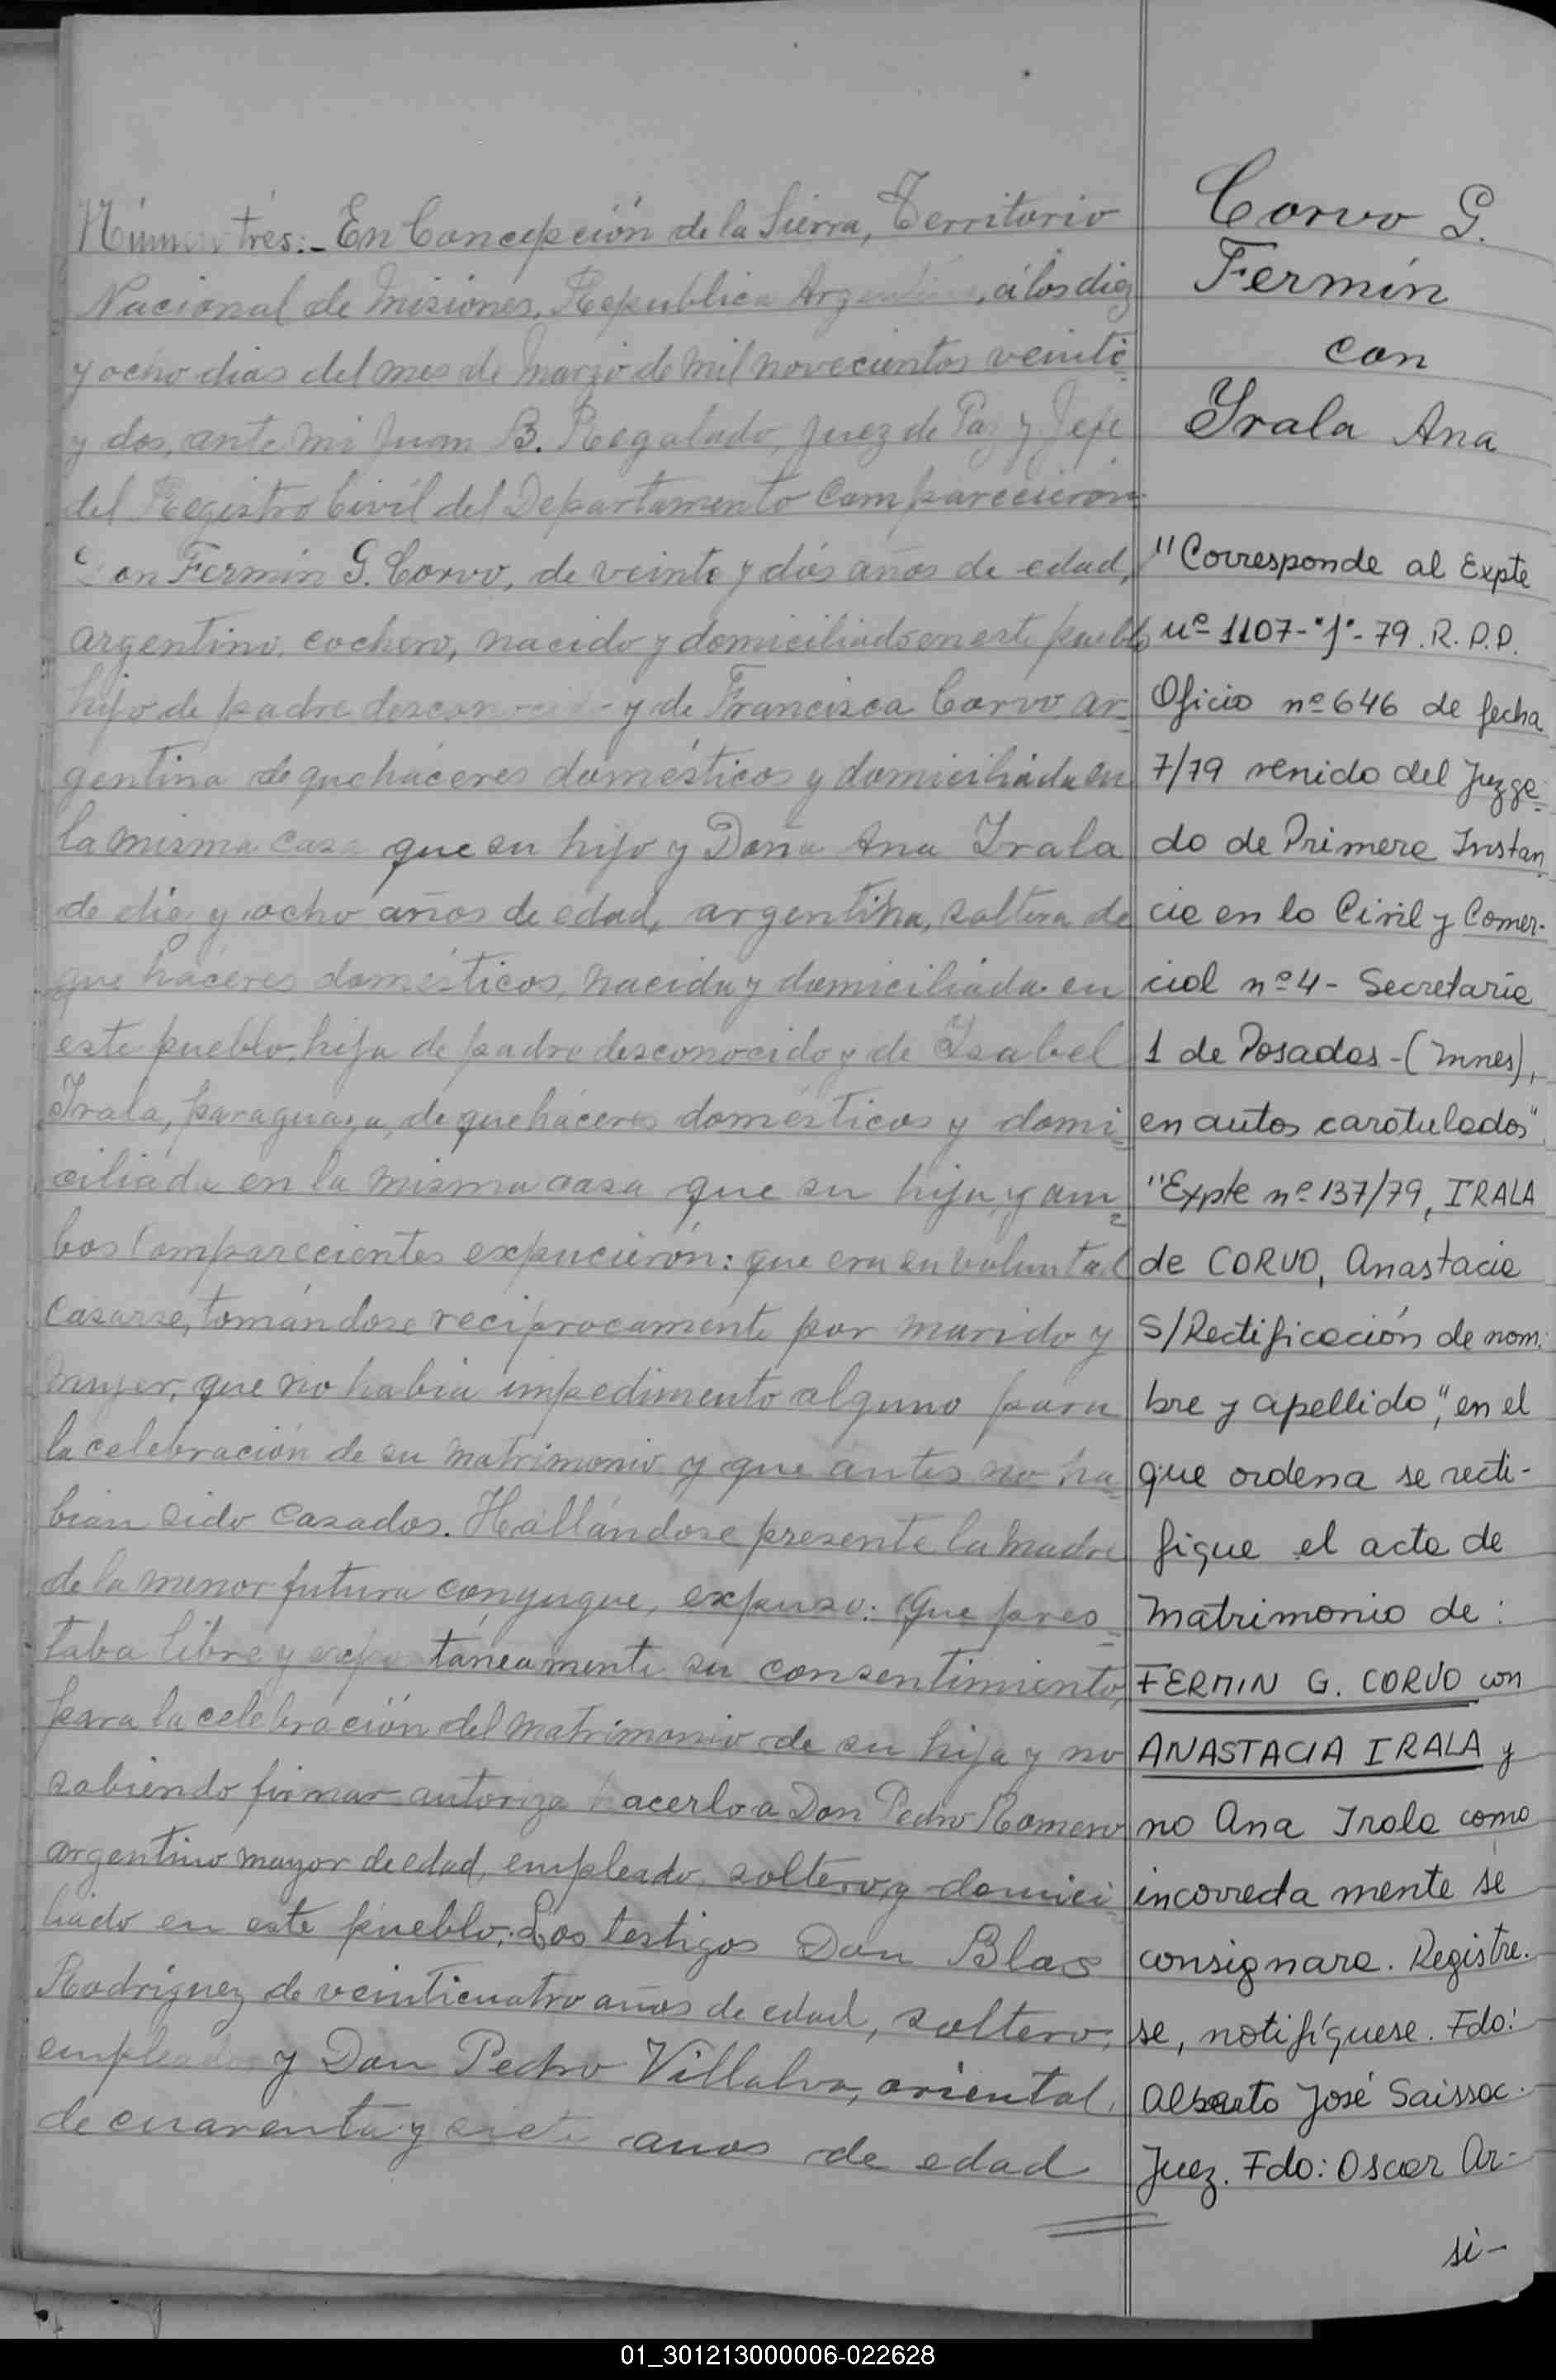 Número tres:- En Concepción de la Sierra, Territorio
Nacional de Misiones, Republica Argentina, á los diez
y ocho dias del mes de Marzo de mil novecientos veinte
y dos, ante mi Juan B. Regalado, Juez de Paz y Jefe
del Registro Civil del Departamento Comparecierón
Don Fermin G. Corvo, de veinte y dós años de edad,
argentino, cochero, nacido y domiciliado en este pueblo
hijo de padre desconocido y de Francisca Corvo, ar=
gentina de quehaceres domésticos y domiciliada en
la misma casa que su hijo y Doña Ana Irala
de diez y ocho años de edad, argentina, soltera de
que haceres domésticos, nacida y domiciliada en
este pueblo, hija de padre desconocido y de Isabel
Irala, paraguaya, de quehaceres domésticos y domi=
ciliada en la misma casa que su hija, y am=
bos Comparecientes expucierón: que era su voluntad
Casarse, tomándose reciprocamente por marido y
mujer, que no habia impedimento alguno para
la celebración de su matrimonio y que antes no ha=
bian sido Casados. Hallándose presente la madre
de la menor futura conyugue, expuso: Que pres=
taba libre y espontáneamente su consentimiento,
para la celebración del matrimonio de su hija y no
sabiendo firmar autoriza hacerlo a Don Pedro Romero
argentino mayor de edad, empleado, soltero, y domici=
liado en este pueblo; Los testigos Don Blas
Rodriguez de veinticuatro años de edad, soltero,
empleado y Don Pedro Villalva, oriental,
de cuarenta y siete anos de edad
Corvo G.
Fermín
con
Yrala Ana
"Corresponde al Expte
nº 1107-"J"- 79. R.P.P.
Oficio nº 646 de fecha
7/79 venido del Juzga=
do de Primera Instan
cia en lo Civil y Comer-
cial nº 4 - Secretaria
1 de Posadas - (Mnes),
en autos carátulados"
"Expte nº 137/79, IRALA
de CORVO, Anastacia
S/Rectificación de nom.
bre y apellido", en el
que ordena se recti-
fique el acta de
Matrimonio de :
FERMIN G. CORVO con
ANASTACIA IRALA y
no Ana Irala como
incorrecta mente se
consignara. Registre.
se, notifíquese. Fdo:
Alberto José Saissac.
Juez. Fdo: Oscar Ar-
si-
01_301213000006-022628